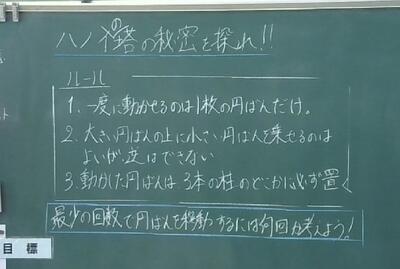 ハノイの塔の秘密を探れ!!
ルール
1. 一度に動かせるのは1枚の円ばんだけ。
2. 大きい円ばんの上に小さい円ばんを乗せるのは
よいが、逆はできない
3. 動かした円ばんは3本の柱のどこかに必ず置く
最少の回数で円ばんを移動するには何回か考えよう!
目標